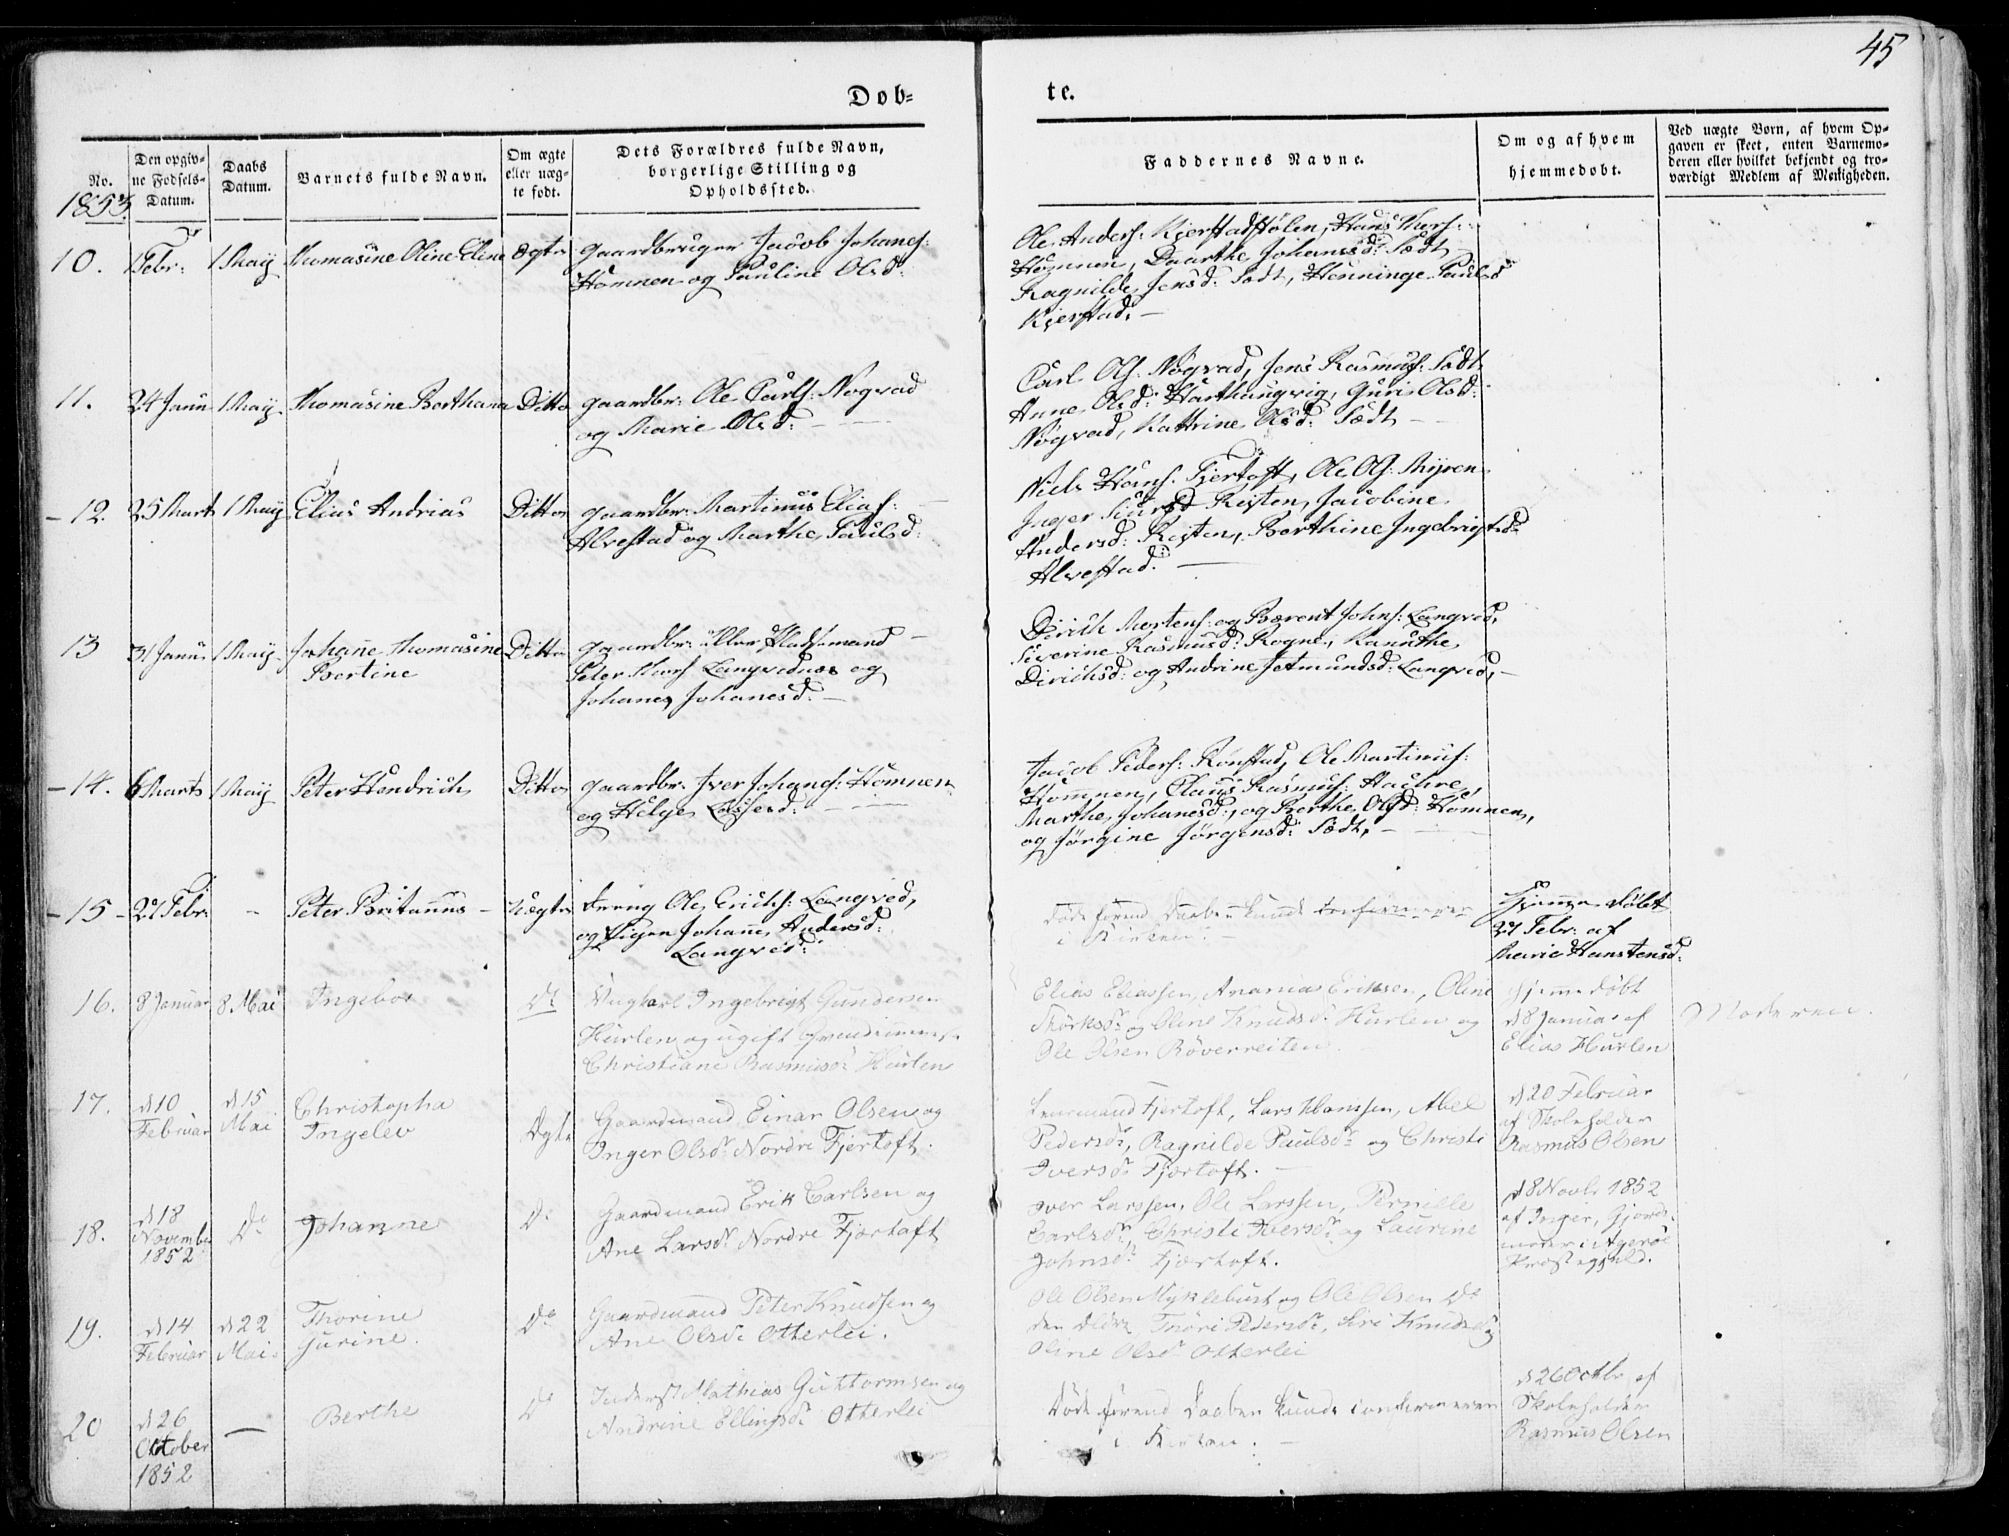 45
Døb=
te.
No.
Den opgiv=
ne Fødsels=
Datum.
Daabs
Datum.
Barnets fulde Navn.
Om ægte
eller uæg=
te født.
Dets Forældres fulde Navn,
borgerlige Stilling og
Opholdssted.
Faddernes Navne.
Om og af hvem
hjemmedøbt.
Ved uægte Børn, af hvem Op=
gaven er skeet, enten Barnemo=
deren eller hvilket bekjendt og tro=
værdigt Medlem af Menigheden.
1853
10. 1 Febr: 1 May Thomasine Oline Eline Ægte Gaardbruger Jacob Johanes:
Homnen og Pauline Olsd:
Ole Anders: Kjerstadstølen, Hans
Homnen, Daarthe Johanesd: Sødt
Ragnilde Jensd: Sødt, Henninge Paulsd
Kjerstad. —
11. 24 Janu 1 May Thomasine Berthana Ditto Gaardbr: Ole Carls: Nogvad
og Marie Olsd: —
Carl Ols: Nøgvad, Jens Rasmus: Sødt
Anne Olsd: Harthaugvig, Guri Olsd:
Nøgvad, Kathrine Olsd: Sødt —
12. 25 Mart 1 May Elias Andrias Ditto Gaardbr: Martinus Elias:
Alvestad og Marthe Paulsd:
Niels Hans: Fjertoft, Ole Ols: Myren
Inger Sivrsd Rejten, Jacobine
Andersd: Rejten, Berthine Ingebrigtsd:
Alvestad. —
13 31 Janu 1 May Johane Thomasine Ditto Gaardbr: eller Pladsemand —
Bertine
Peter Langvednes og
Johane Johanesd: —
Dirich Mortens: og Berent Johns: Langved,
Siverine Rasmusd: Rogne, Kanuthe
Dirichsd: og Andrine Jetmundsd: Langved, —
14. 6 Marts 1 May Peter Hendrich Ditto Gaardbr: Iver Johanes: Homnen
og Helge
Jacob Peders: Rønstad, Ole Martinus:
Homnen, Claus Rasmus:
Marthe Johanesd:, og Berthe Olsd: Homnen,
og Jørgine Jørgensd: Sødt, —
15 27 Febr: — Peter Britanus — Uægte Dreng Ole Erichs: Langved,
og Pigen Johane Andersd:
Langved:
Døde førend Daaben kunde confirmeres
i Kirken. —
Hjemme Døbt
27 Febr: af
Marie Hanstensd:
16. 8 Januar 8 Mai Ingebor Do Ungkarl Ingebrigt Gundersen
Hurlen og ugift
Christiane Rasmusdr Hurlen
Elias Eliassen, Ananias Eriksen, Oline
og Oline Knudsdr Hurlen og
Ole Olsen Røverreiten
Hjemmedøbt
d 8 Januar af
Elias Hurlen
Moderen.
17. d 10
Februar
d 15
Mai
Christopha
Ingelev
Ægte
Gaardmand Einar Olsen og
Inger Olsdr Nordre Fjertoft.
Fjertoft, Lars Hanssen, Abel
Pedersdr, Ragnilde Paulsdr og Christi
Iversdr Fjærtoft. —
d 20 Februar
af Skoleholder
Rasmus Olsen
18. d 18
Novembr
1852
Do
Johanne
Do
Gaardmand Erik Carlsen og
Ane Larsdr Nordre Fjærtoft
Iver Larssen, Ole Larssen, Pernille
Carlsdr, Christi Iversdr og Laurine
Johnsdr Fjærtoft.
d 18 Novbr 1852
af Inger, Gjord=
moder i Agerøe
Præstegjeld.
19. d 14
Februar
d 22
Mai
Thorine
Gurine.
Do
Gaardmand Peter Knudsen og
Ane Olsdr Otterlei.
Ole Olsen Myklebust og Ole Olsen Do
den Ældre, Thøri Pedersdr, Siri Knudsdr og
Oline Olsdr Otterlei
20 d 26
Oktober
1852
—
Berthe
Do
Inderst Mathias Guttormsen og
Andrine Ellingsdr Otterlei
Døde førend Daaben kunde confirmeres
i Kirken. —
d 26 Octbr af
Skoleholder
Rasmus Olsen